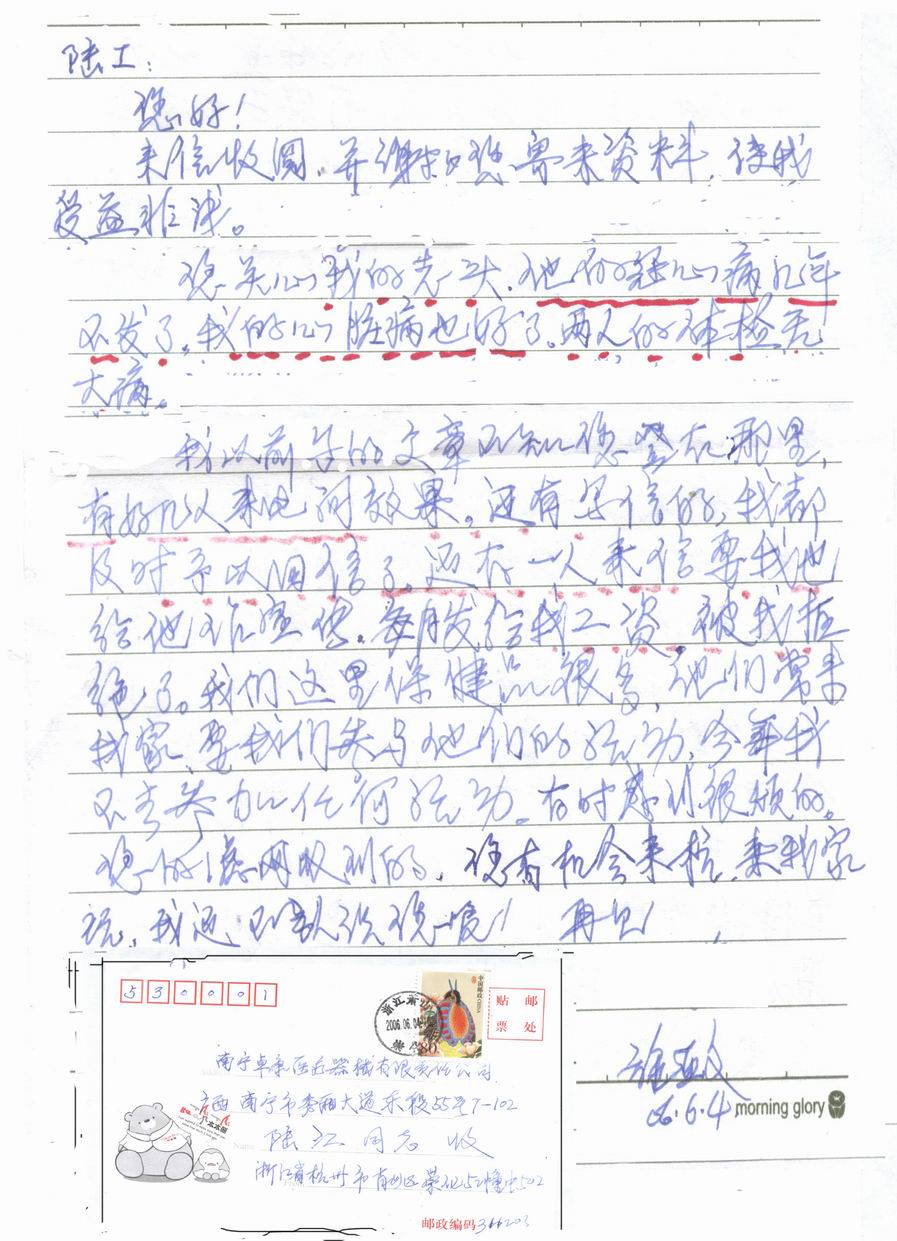 陆工:
您好!
来信收阅,并谢谢您寄来资料,使我
受益非浅。
您关心我的先丈,他的冠心病几年
不发了,我的心脏病也好了。两人的体检无
大病。
我以前写的文章不知您登在那里,
有好几人来此询效果,还有写信的,我都
及时予以回信了。还有一人来信要我也
给他作宣传,每月发给我工资,被我拒
绝了。我们这里保健品很多,他们常来
我家,要我们参与他们的活动,今年我
不去参加任何活动。有时感到很烦的。
您的 收到的,您有机会来杭,来我家
玩,我还 您 ! 再见!
530001
中国邮政 CHINA
80
浙江
2006.06.04
贴 邮
票 处
南宁卓康医疗器械有限责任公司
广西南宁市秀厢大道东段55号7-102
陆江同志 收
浙江省杭州市 502
邮政编码
06.6.4
morning glory